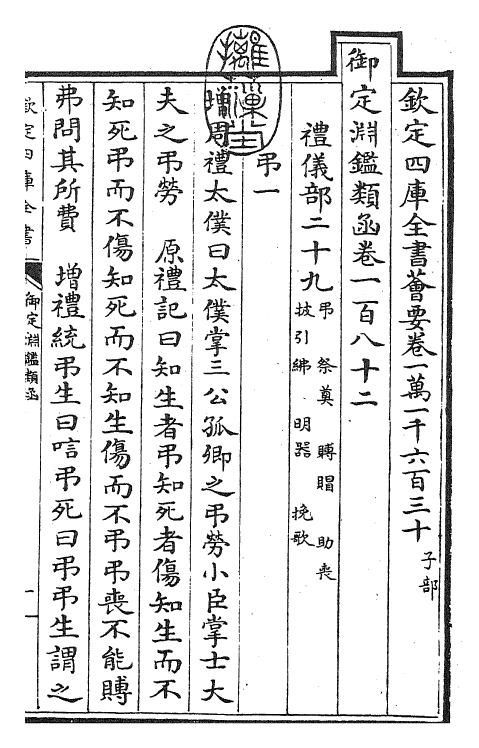 欽定四庫全書薈要卷一萬一千六百三十 子部
御定淵鑑類函卷一百八十二
禮儀部二十九 弔 祭奠 賻賵 助喪
披引紼 明器 挽歌
弔一
增周禮太僕曰太僕掌三公孤卿之弔勞小臣掌士大
夫之弔勞 原禮記曰知生者弔知死者傷知生而不
知死弔而不傷知死而不知生傷而不弔弔喪不能賻
弗問其所費 增禮統弔生曰唁弔死曰弔弔生謂之
欽定四庫全書 御定淵鑑類函 一